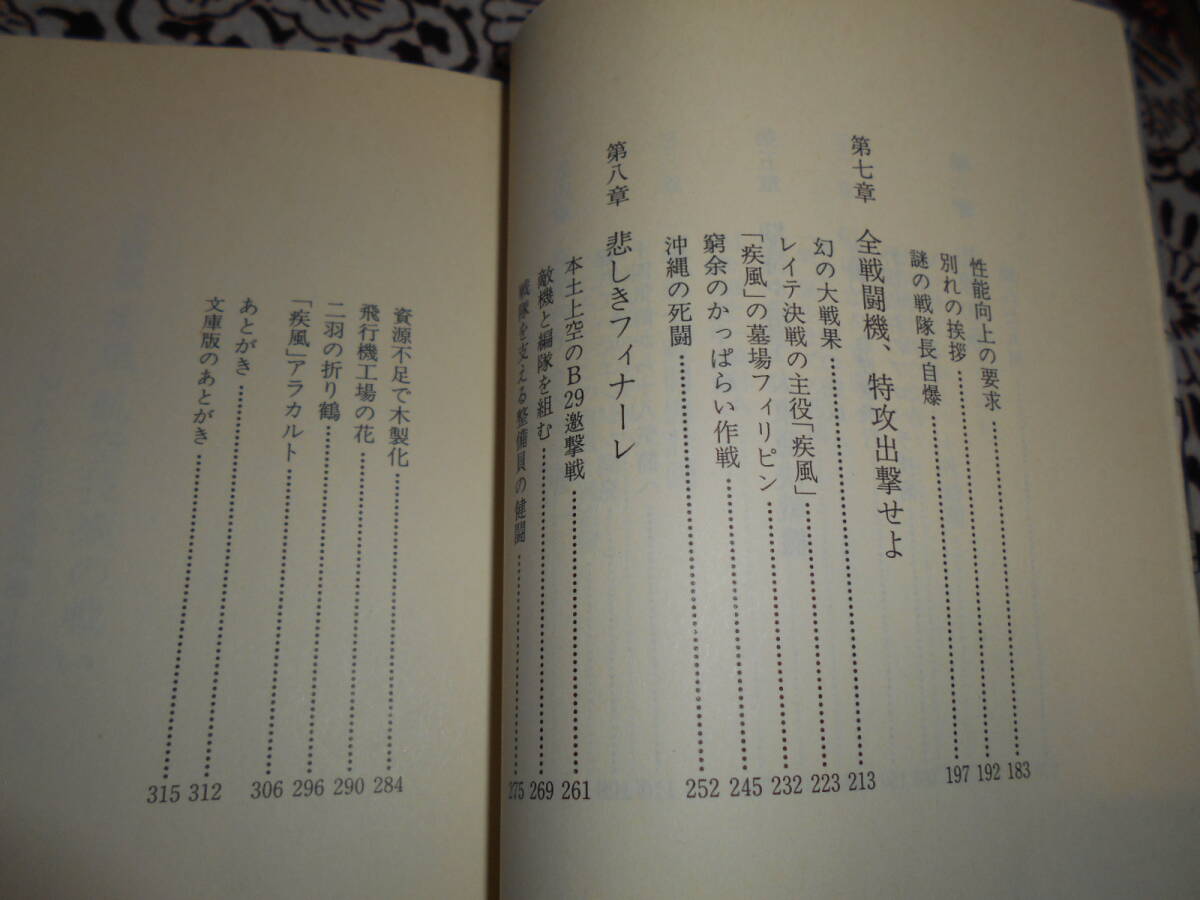 性能向上の要求……183
別れの挨拶……192
謎の戦隊長自爆……197
第七章 全戦闘機、特攻出撃せよ
幻の大戦果……213
レイテ決戦の主役「疾風」……223
「疾風」の墓場フィリピン……232
窮余のかっぱらい作戦……245
沖縄の死闘……252
第八章 悲しきフィナーレ
本土上空のB29邀撃戦……261
敵機と編隊を組む……269
戦隊を支える整備員の健闘……275
資源不足で木製化……284
飛行機工場の花……290
二羽の折り鶴……296
「疾風」アラカルト……306
あとがき……312
文庫版のあとがき……315